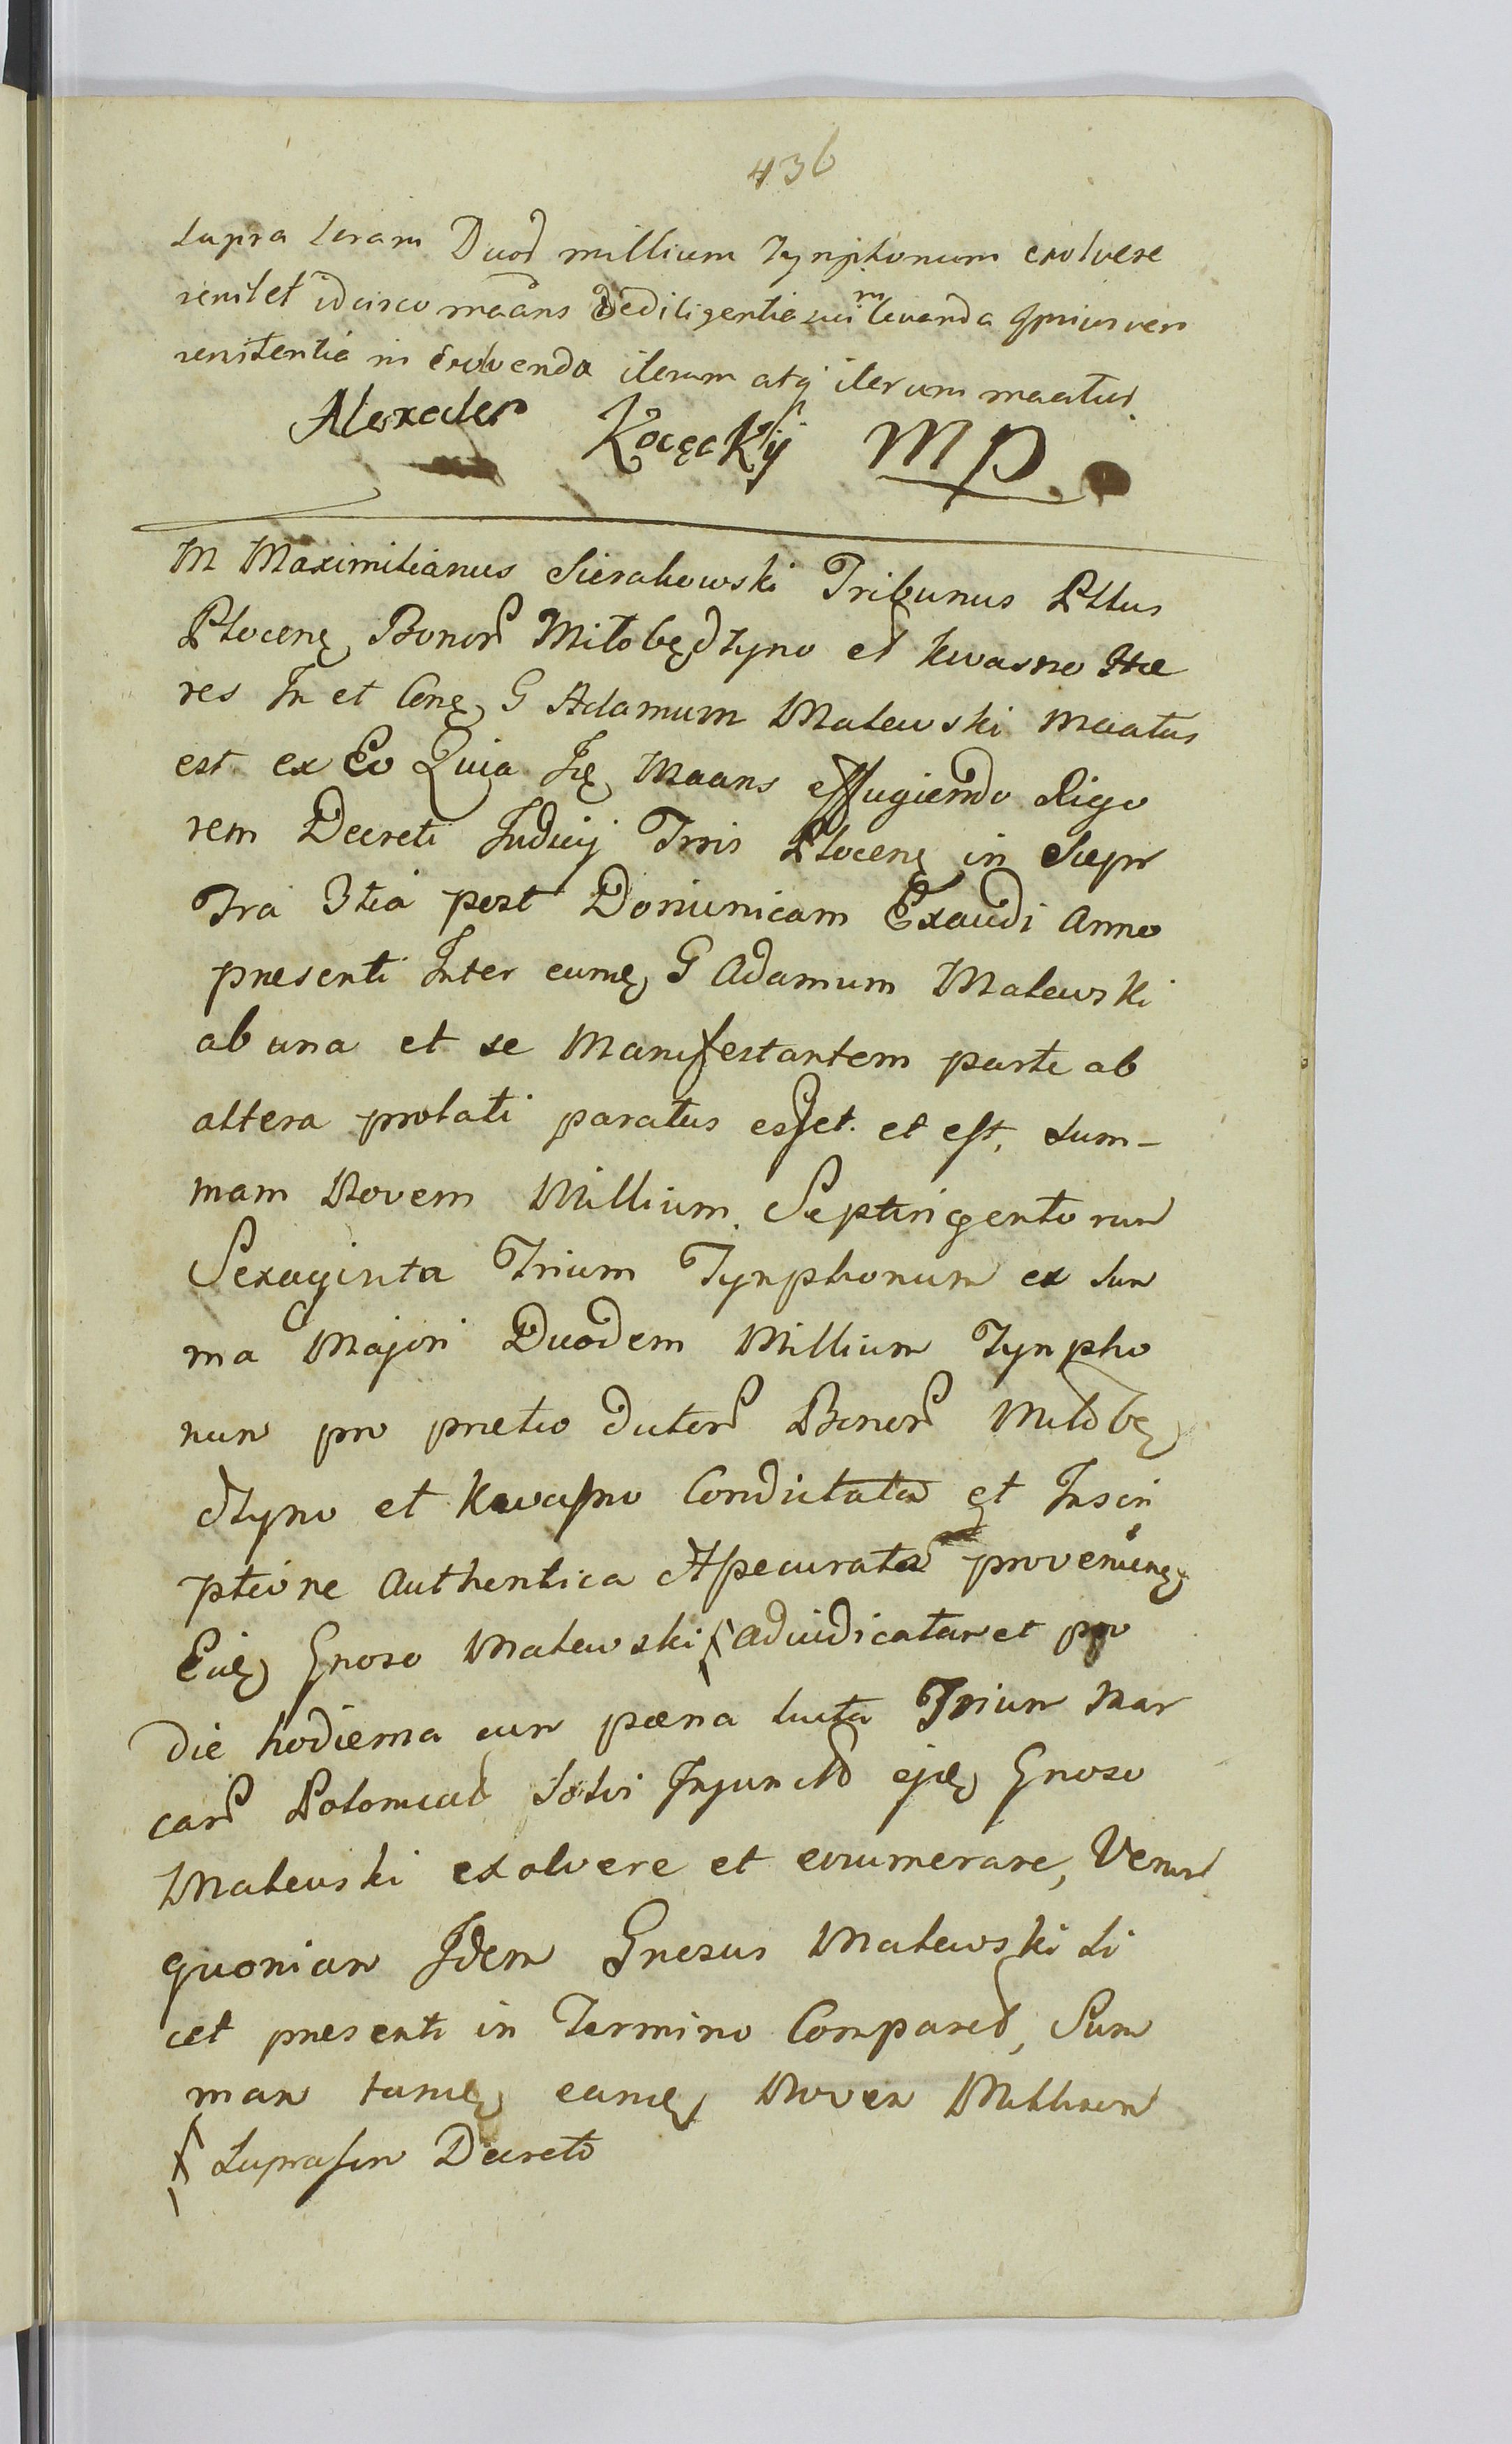 436
supra scram Duod millium Tynphonum exolvere
renitet idcirco maans de diligentia sui in levanda Gpniusven
renitentia in exolvenda iterum atq iterum maatus.
Alexader Kocęckij mp
M Maximilianus Sierakowski Tribunus Pttus
Plocenę Bonor Miłobędzyno et kwasno Hæ
res In et Conę G Adamum Malewski maatus
est ex Eo Quia Ię Maans effugiendo Rigo
rem Decreti Iudicij Trris Plocenę in Siepr
Tra 3tia post Dominicam Exaudi Anno
presenti Inter eumę G Adamum Malewski
ab una et se Manifestantem parte ab
altera prolati paratus esset et est, sum-
mam Novem Millium Septingentorum
Sexaginta Trium Tynphonum ex sum
ma Majori Duodem Millium Tynpho
num pro pretio dictor Bonor Miłobę
dzyno et kwasno Condictata et Inscri
ptione Authentica Assecurata provenienę
Eidę Gnoso Malewski adiudicatam et pro
die hodierna cum pœna lucta Trium Mar
car Polonical solvi Injuncto ejdę Gnoso
Malewski exolvere et enumerare, Verum
quoniam Idem Gnesus Malewski li
cet presenti in Termino Compared, Sum
mam tamę eamę Novem Millium
suprascrin Decreto